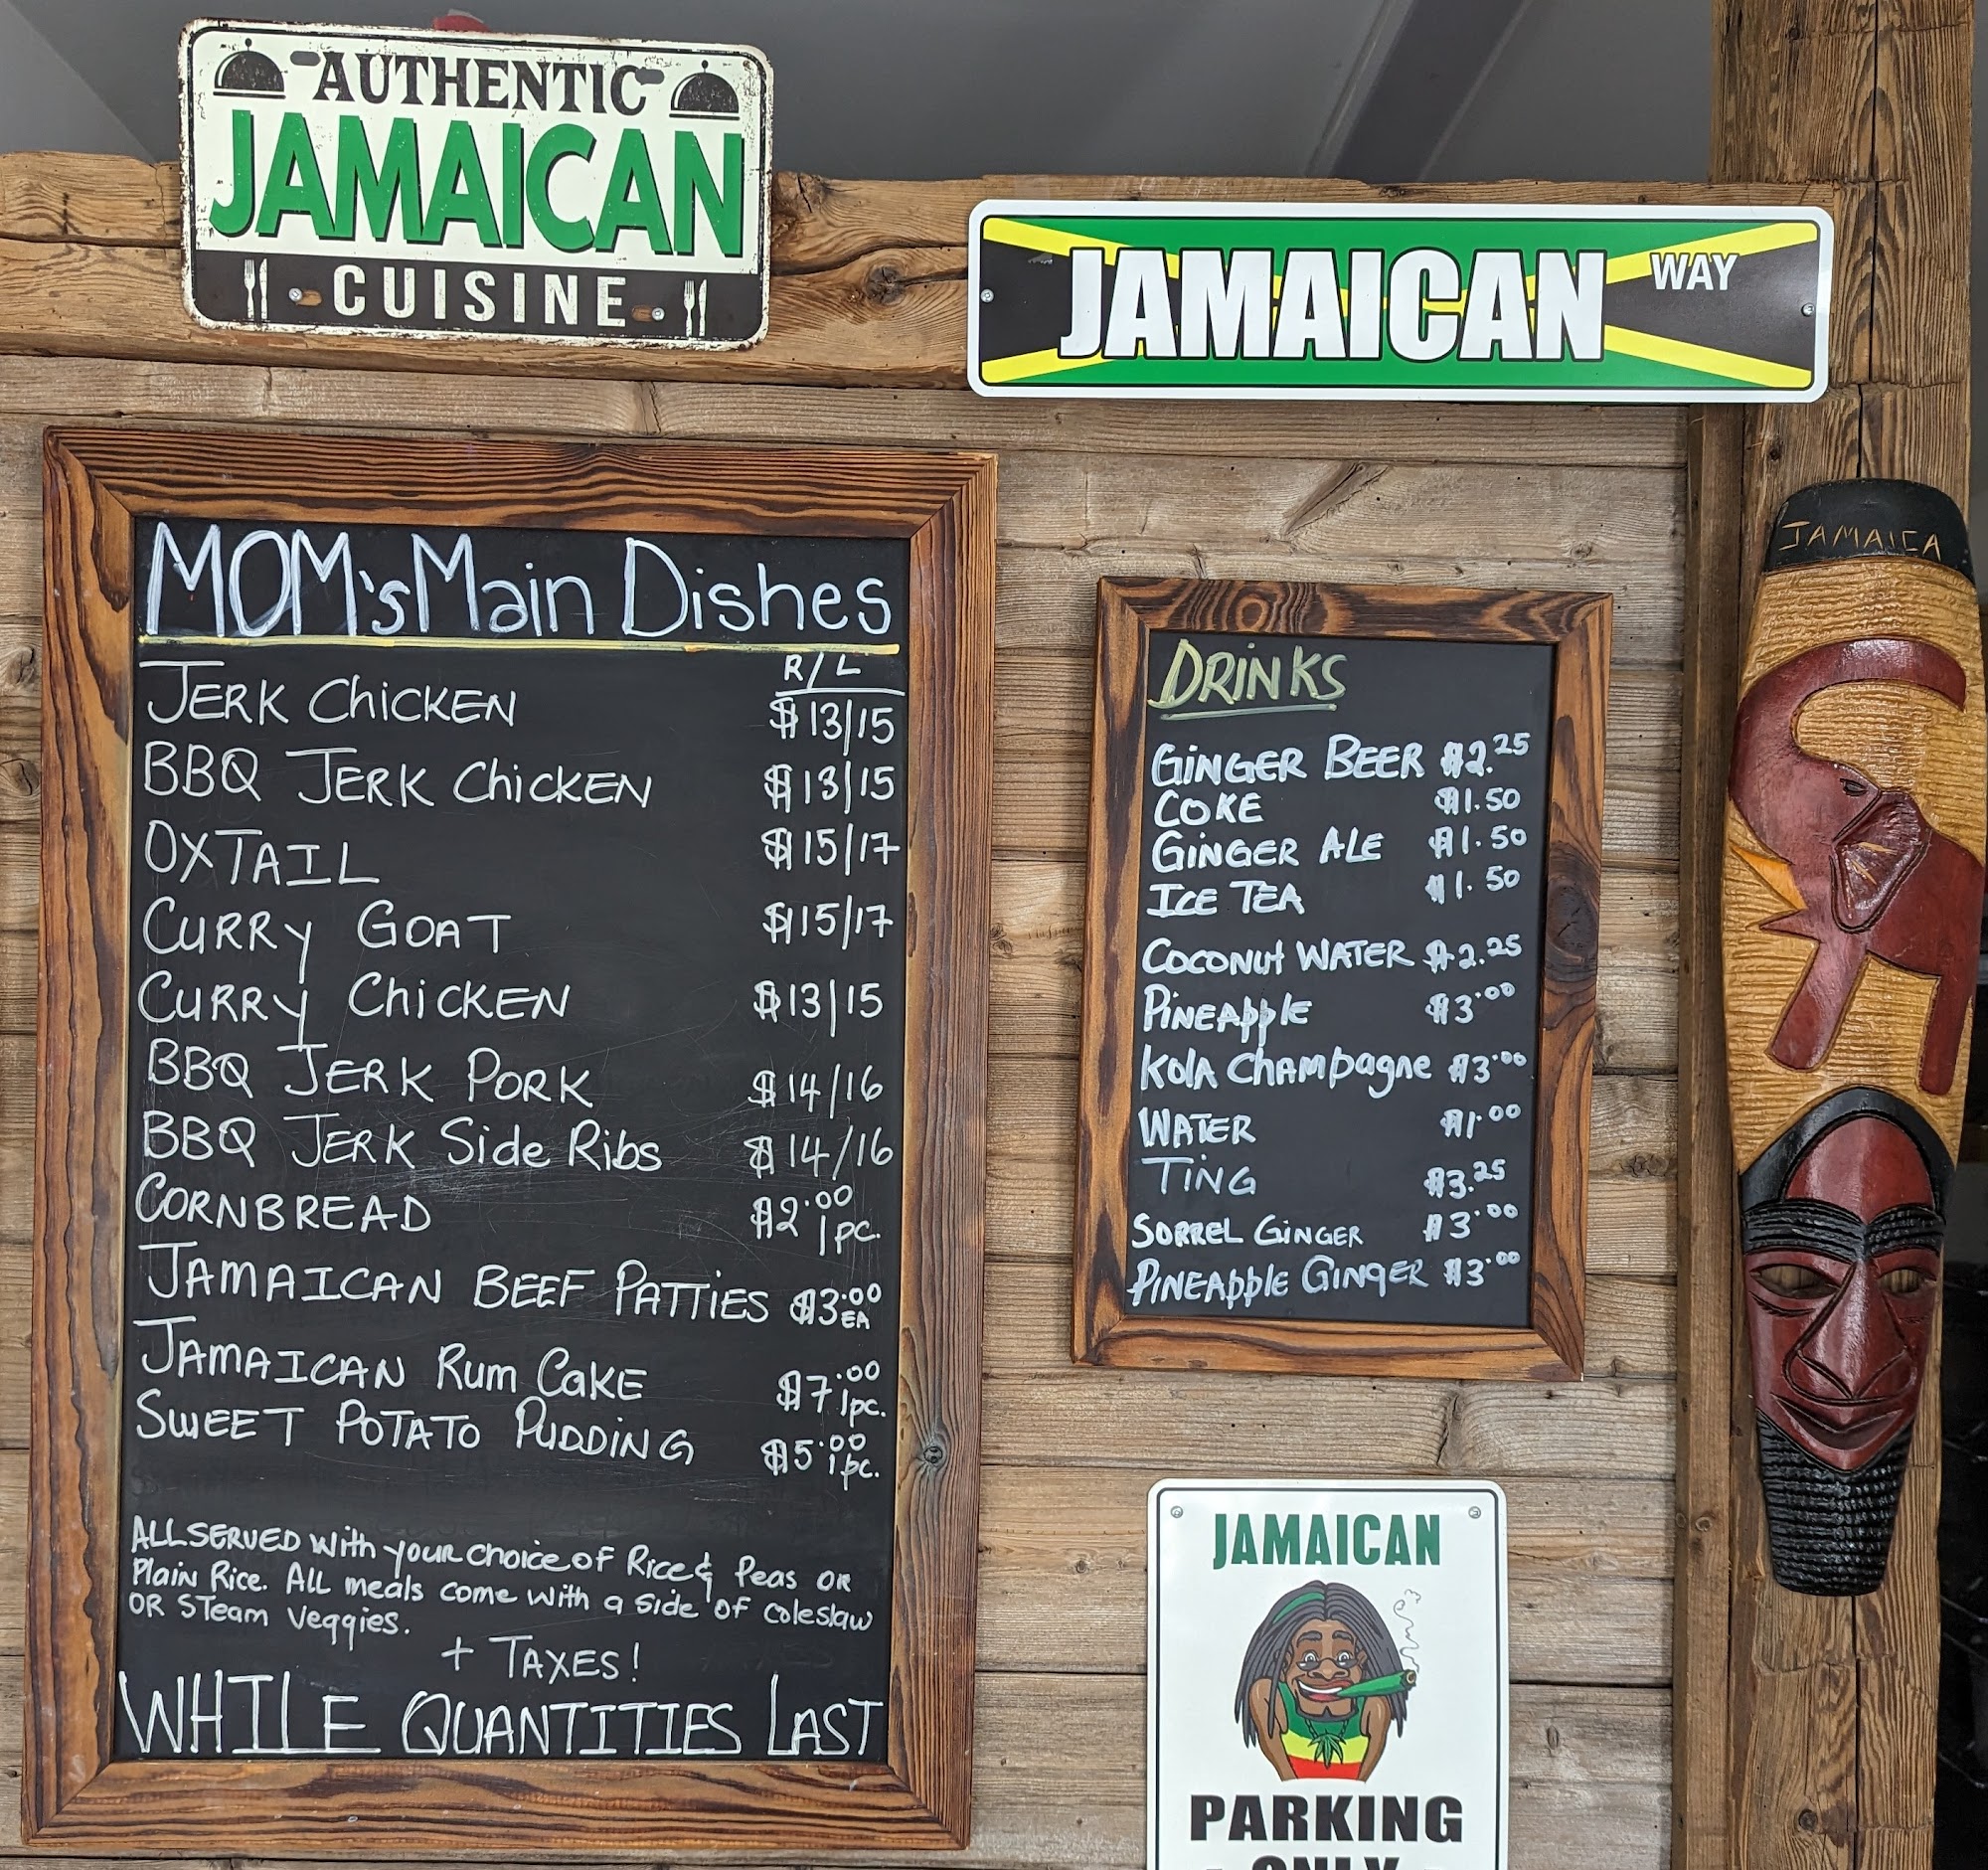 AUTHENTIC
JAMAICAN
CUISINE
JAMAICAN WAY
JAMAICA
MOM's Main Dishes
R/L
JERK CHICKEN $13/15
BBQ JERK CHICKEN $13/15
OXTAIL $15/17
CURRY GOAT $15/17
CURRY CHICKEN $13/15
BBQ JERK PORK $14/16
BBQ JERK Side Ribs $14/16
CORNBREAD $2.00 1pc.
JAMAICAN BEEF PATTIES $3.00 EA
JAMAICAN Rum CAKE $7.00 1pc.
SWEET POTATO PUDDING $5.00 1pc.
ALL SERVED with your choice of Rice & Peas OR
Plain Rice. All meals come with a side of coleslaw
OR STeam Veggies.
+ TAXES!
WHILE QUANTITIES LAST
DRINKS
GINGER BEER $2.25
COKE $1.50
GINGER ALE $1.50
ICE TEA $1.50
COCONUT WATER $2.25
PINEApple $3.00
Kola Champagne $3.00
WATER $1.00
TING $3.25
SORREL GINGER $3.00
PINEApple GINGER $3.00
JAMAICAN
PARKING
ONLY